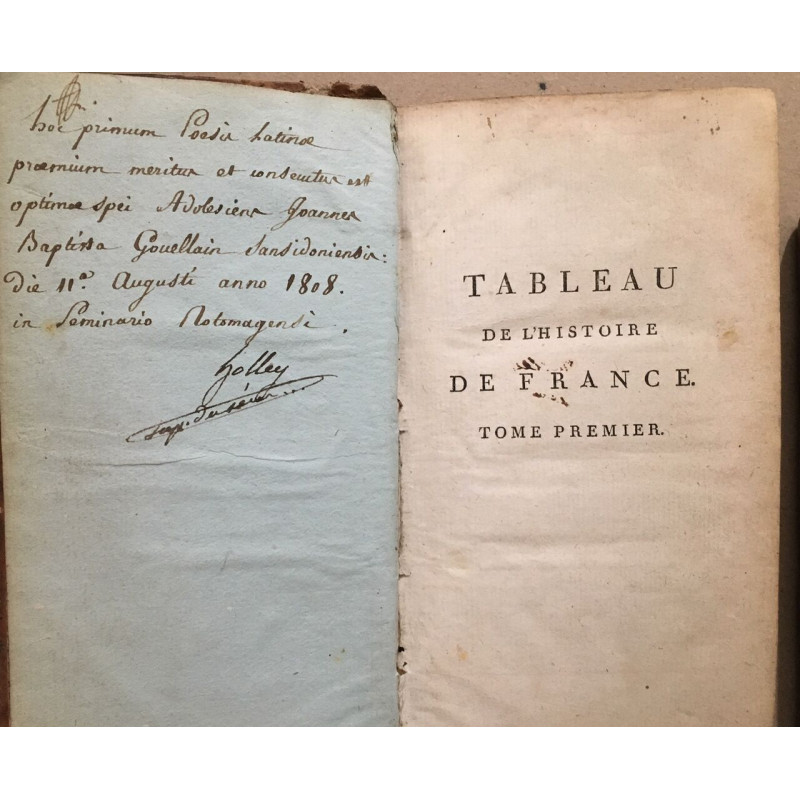 hoc primum Poesis Latinæ
præmium meritus et consecutus est
optimæ spei Adolesiens Joannes
Baptista Gouellain Sansidoniensis:
die 11ª Augusti anno 1808.
in Seminario Rotomagensi.
holley
TABLEAU
DE L'HISTOIRE
DE FRANCE.
TOME PREMIER.